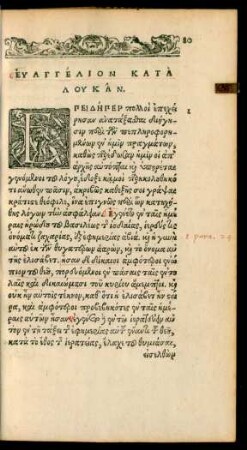 80
ΕΥΑΓΓΕΛΙΟΝ ΚΑΤΑ
ΛΟΥΚΑΝ.
ΠΕΙΔΗΠΕΡ πολλοὶ ἐπεχεί
ρησαν ἀνατάξασθαι διήγη-
σιν περὶ τῶν πεπληροφορη-
μένων ἐν ἡμῖν πραγμάτων,
καθὼς παρέδωσαν ἡμῖν οἱ ἀπ'
ἀρχῆς αὐτόπται καὶ ὑπηρέται
γενόμενοι τοῦ λόγου, ἔδοξε κἀμοὶ παρηκολουθηκό
τι ἄνωθεν πᾶσιν, ἀκριβῶς καθεξῆς σοι γράψαι
κράτιστε θεόφιλε, ἵνα ἐπιγνῷς περὶ ὧν κατηχή-
θης λόγων τὴν ἀσφάλειαν. Ἐγένετο ἐν ταῖς ἡμέ-
ραις ἡρώδου τοῦ βασιλέως τ ἰουδαίας, ἱερεύς τις
ὀνόματι ζαχαρίας, ἐξ ἐφημερίας ἀβιά. καὶ ἡ γυνὴ
αὐτοῦ ἐκ τῶν θυγατέρων ἀαρών, καὶ τὸ ὄνομα αὐ-
τῆς ἐλισάβετ. ἦσαν δὲ δίκαιοι ἀμφότεροι ἐνώ-
πιον τοῦ θεοῦ, πορευόμενοι ἐν πάσαις ταῖς ἐντο-
λαῖς καὶ δικαιώμασι τοῦ κυρίου ἄμεμπτοι. καὶ
οὐκ ἦν αὐτοῖς τέκνον, καθότι ἡ ἐλισάβετ ἦν στεῖ
ρα, καὶ ἀμφότεροι προβεβηκότες ἐν ταῖς ἡμέ-
ραις αὐτῶν ἦσαν. Ἐγένετο δὲ ἐν τῷ ἱερατεύειν αὐ
τὸν ἐν τῇ τάξει τ ἐφημερίας αὐτοῦ ἔναντι τοῦ θεοῦ,
κατὰ τὸ ἔθος τ ἱερατείας, ἔλαχε τοῦ θυμιᾶσαι,
εἰσελθὼν